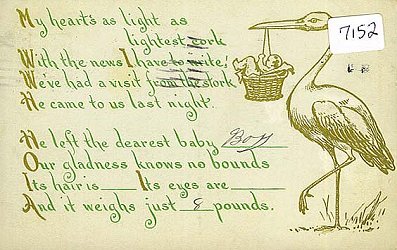 My heart's as light as
lightest cork
With the news I have to write;
We've had a visit from the stork
He came to us last night.
He left the dearest baby Boy
Our gladness knows no bounds
Its hair is Its eyes are
And it weighs just 8 pounds.
7152